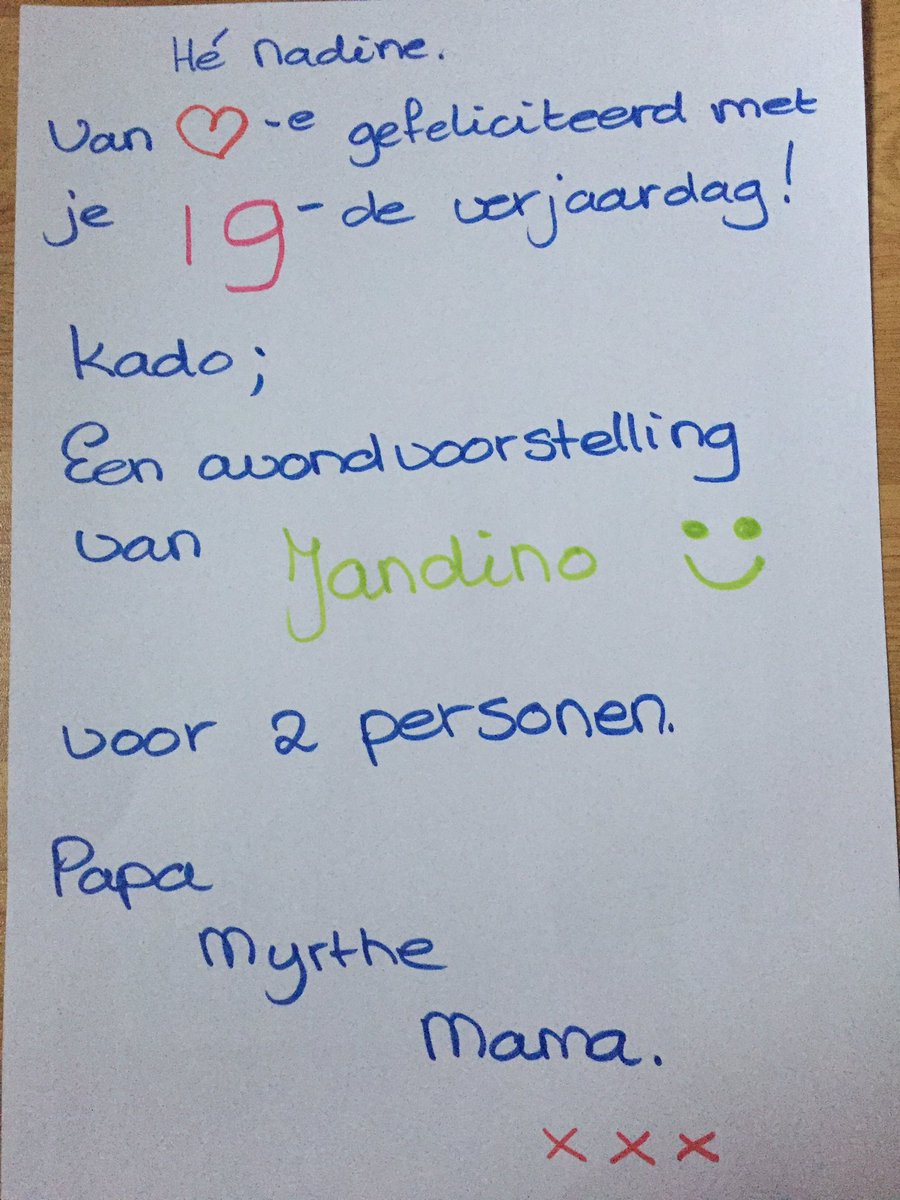 Hé Nadine.
Van ♡-e gefeliciteerd met
je 19-de verjaardag!
Kado;
Een avondvoorstelling
van Jandino
voor 2 personen.
Papa
Myrthe
Mama.
xxx